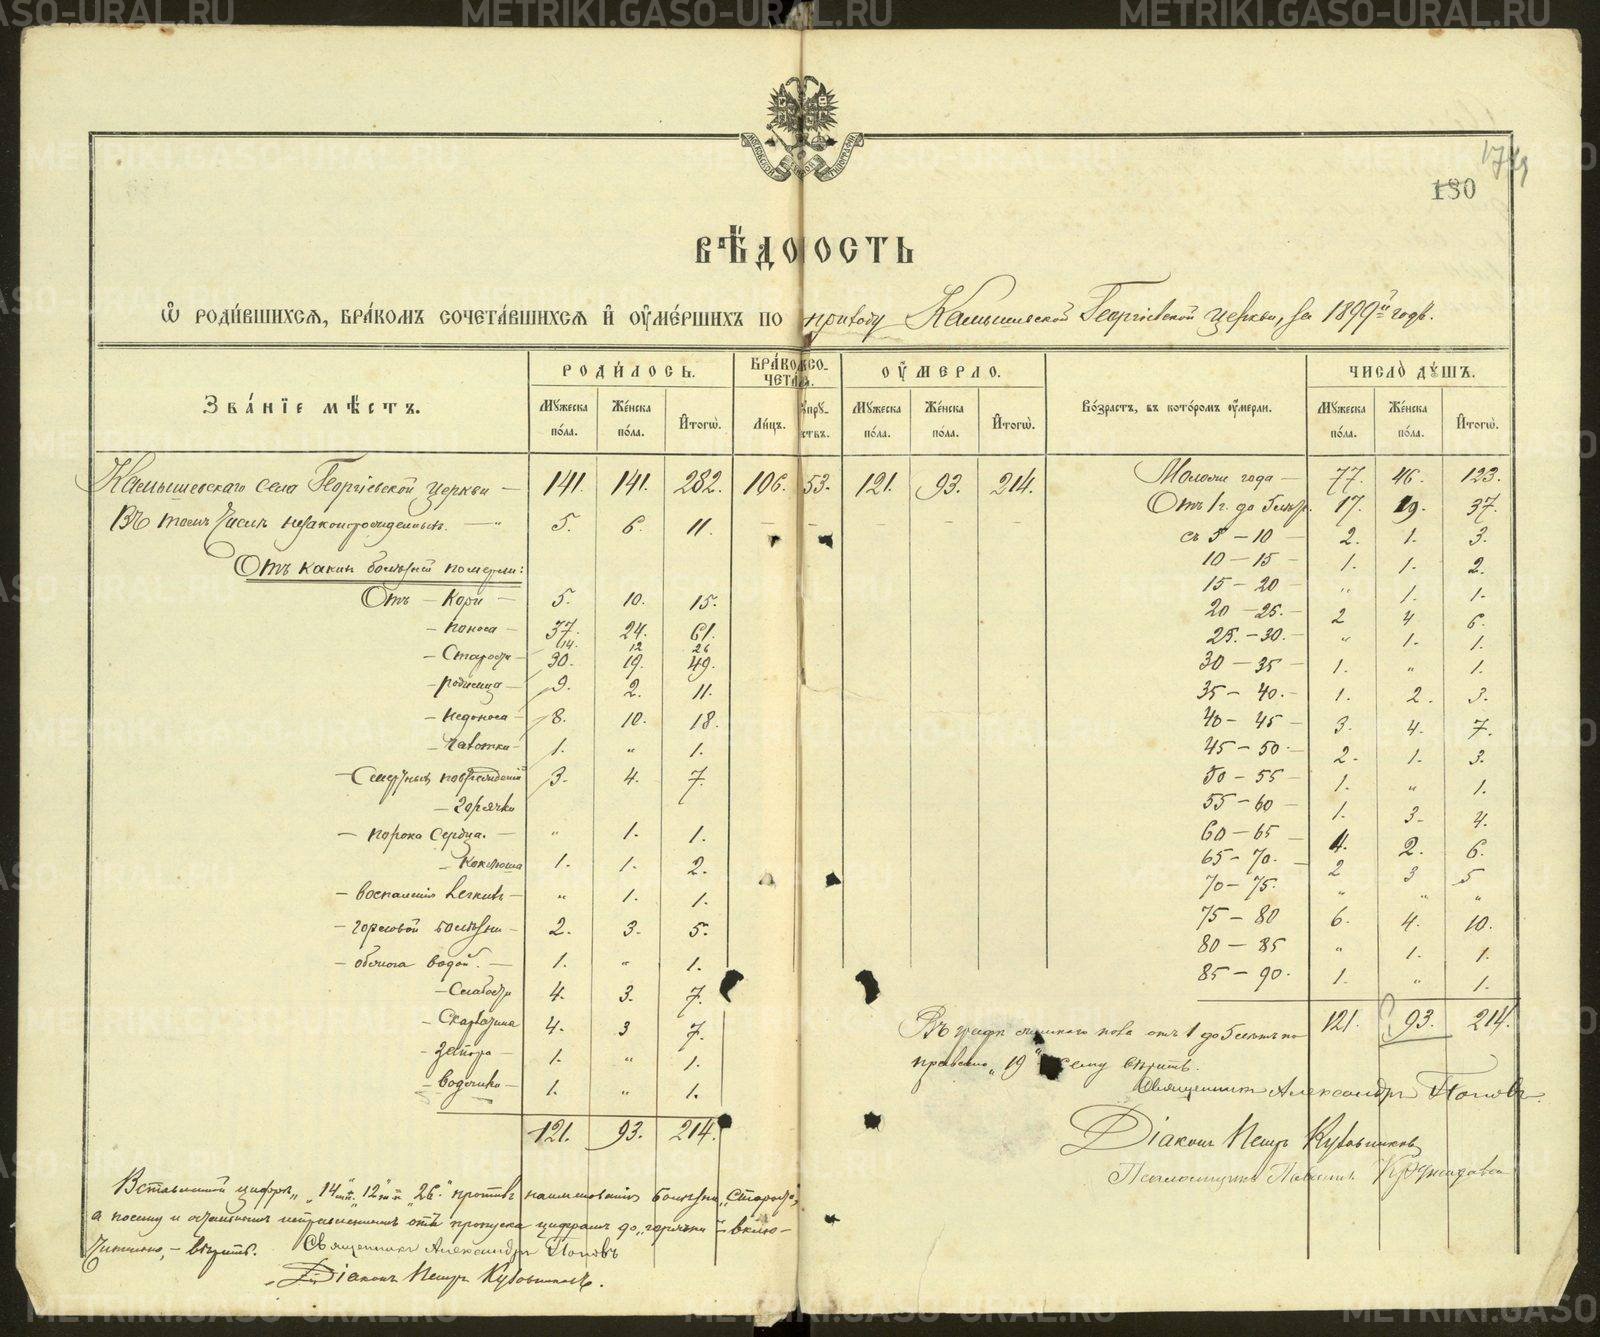 METRIKI.GASO-URAL.RU
174
180
ВѢДОМОСТЬ
Ѡ РОДИВШИХСЯ, БРАКОМЪ СОЧЕТАВШИХСЯ И ОУМЕРШИХЪ ПО приходу Камышевской Георгіевской церкви, за 1899й годъ.
ЗВАНІЕ МѢСТЪ. РОДИЛОСЬ. БРАКОМЪ СО- ЧЕТАЛ. ОУМЕРЛО. Возрастъ, въ которомъ оумерли. ЧИСЛО ДУШЪ.
Мужеска пола. Женска пола. Итогѡ. Лицъ. Супру- жествъ. Мужеска пола. Женска пола. Итогѡ. Мужеска пола. Женска пола. Итогѡ.
Камышевскаго села Георгіевской церкви — 141. 141. 282. 106. 53. 121. 93. 214.
Въ томъ числѣ незаконорожденныхъ. — " 5. 6. 11. – – – – –
Отъ какихъ болѣзней померли:
Отъ — Кори — 5. 10. 15.
— поноса — 37. 24. 61.
14. 12 26
— Старости — 30. 19. 49.
— родимца — 9. 2. 11.
— недоноса — 8. 10. 18.
— чахотки — 1. " 1.
— Смертныхъ повреждений 3. 4. 7.
— горячки
— порока сердца. — " 1. 1.
— Коклюша 1. 1. 2.
— воспаленія легкихъ — " 1. 1.
— горловой болѣзни — 2. 3. 5.
— обжога водой. — 1. " 1.
— Слабости 4. 3. 7.
— Скарлатина 4. 3 7.
— запора — 1. " 1.
— водянки — 1. " 1.
121. 93. 214.
Вставленной цифрѣ, "14", "12" и "26" противъ наименованія болѣзни "Старости,"
а посему и остальнымъ исправленіямъ отъ пропуска цифрамъ до "горячки" вклю-
чительно, — вѣрить. Священникъ Александръ Поповъ
Діаконъ Петръ Кузовниковъ.
Моложе года — 77. 46. 123.
Отъ 1 г. до 5 лѣтъ. 17. 19. 37.
съ 5 — 10 — 2. 1. 3.
10 — 15 — 1. 1. 2.
15 — 20 — " 1. 1.
20 — 25. — 2 4 6.
25. — 30. — " 1. 1.
30 — 35 — 1. " 1.
35 — 40. — 1. 2. 3.
40 — 45 — 3. 4. 7.
45 — 50. — 2. 1. 3.
50 — 55 — 1. " 1.
55 — 60 — 1. 3. 4.
60 — 65 — 4. 2. 6.
65 — 70. — 2 3 5
70 — 75. " " "
75 — 80 6. 4. 10.
80 — 85 " 1. 1.
85 — 90. 1. " 1.
121. 93. 214.
Въ графѣ женскаго пола отъ 1 до 5 лѣтъ по
правлено "19" сему вѣрить.
Священникъ Александръ Поповъ.
Діаконъ Петръ Кузовниковъ
Псаломщикъ